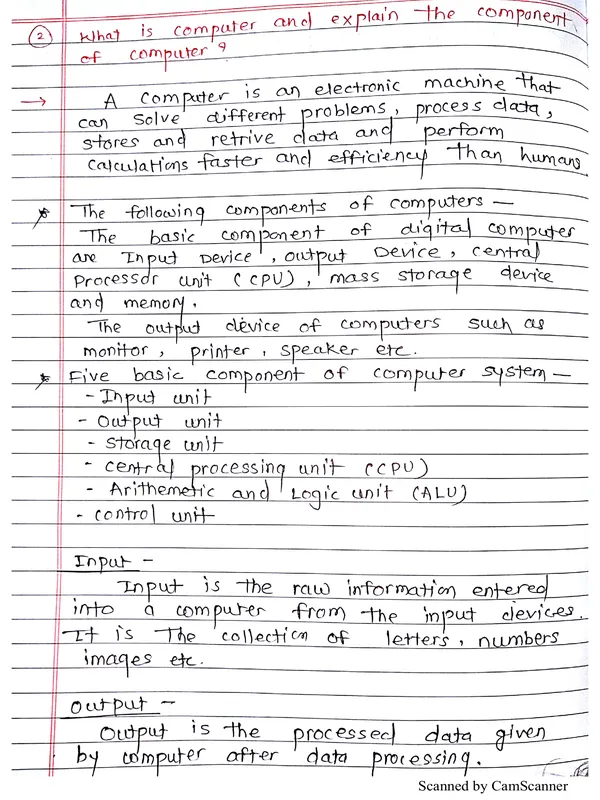 ② What is computer and explain the component
of computer?
→ A computer is an electronic machine that
can solve different problems, process data,
stores and retrive data and perform
calculations faster and efficiency than humans
* The following components of computers —
The basic component of digital computer
are Input Device, output Device, central
Processor unit (CPU), mass storage device
and memory.
The output device of computers such as
monitor, printer, speaker etc.
* Five basic component of computer system —
- Input unit
- Output unit
- Storage unit
- central processing unit (CPU)
- Arithemetic and Logic unit (ALU)
- control unit
Input -
Input is the raw information entered
into a computer from the input devices.
It is the collection of letters, numbers
images etc.
Output -
Output is the processed data given
by computer after data processing.
Scanned by CamScanner